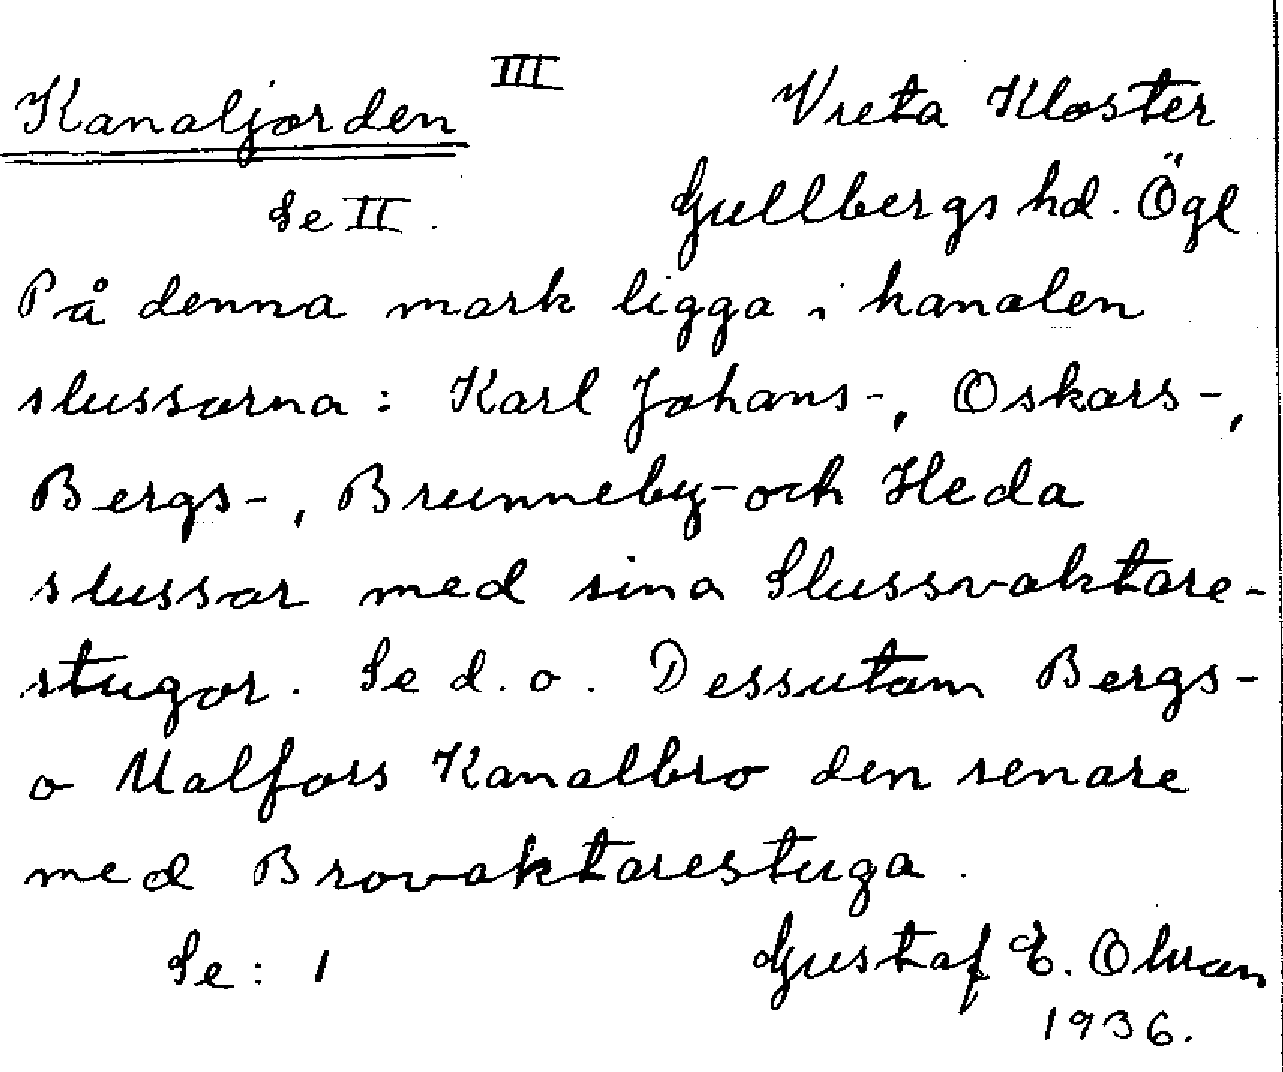 Kanaljorden III Vreta Kloster
Se II. Gullbergs hd. Ögl
På denna mark ligga i kanalen
slussarna: Karl Johans-, Oskars-,
Bergs-, Brunneby- och Heda
slussar med sina Slussvaktare-
stugor. Se d.o. Dessutom Bergs-
o Malfors Kanalbro den senare
med Brovaktarestuga.
Se: 1 Gustaf E.
1936.